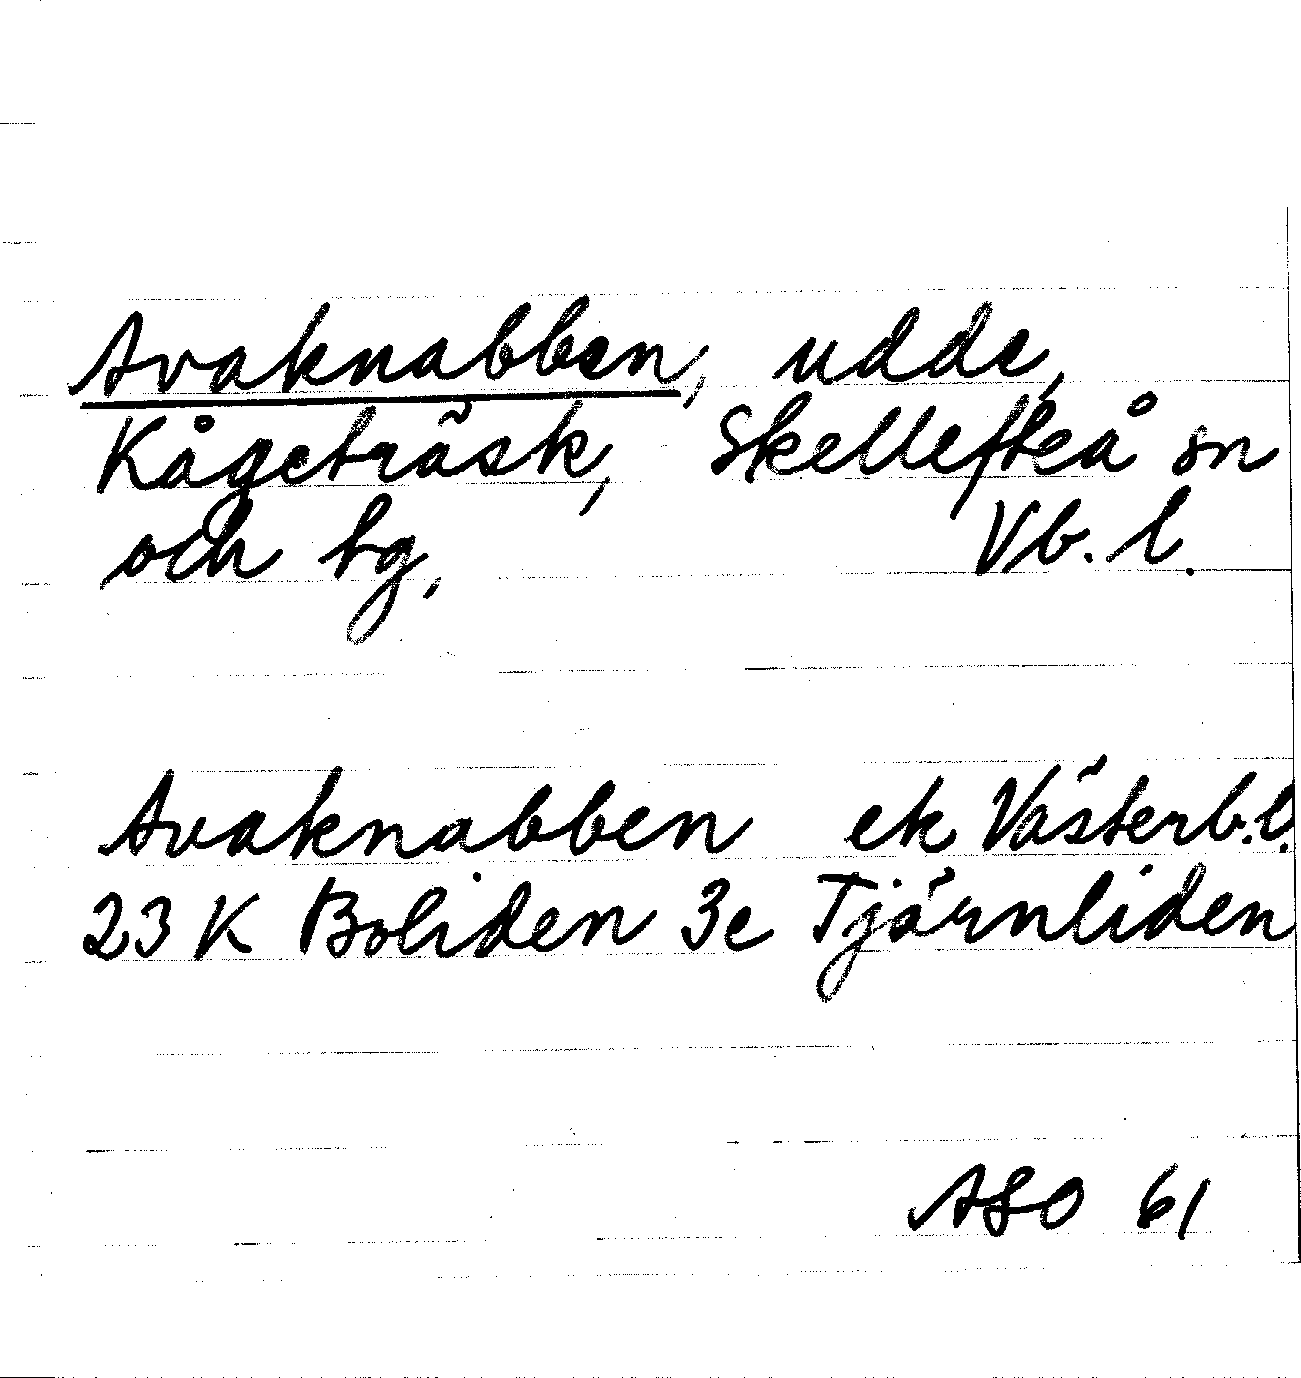 Avaknabben, udde,
Kågeträsk, Skellefteå sn
och tg, Vb. l.
Avaknabben ek Västerb.l.
23 K Boliden 3e Tjärnliden
ASO 61